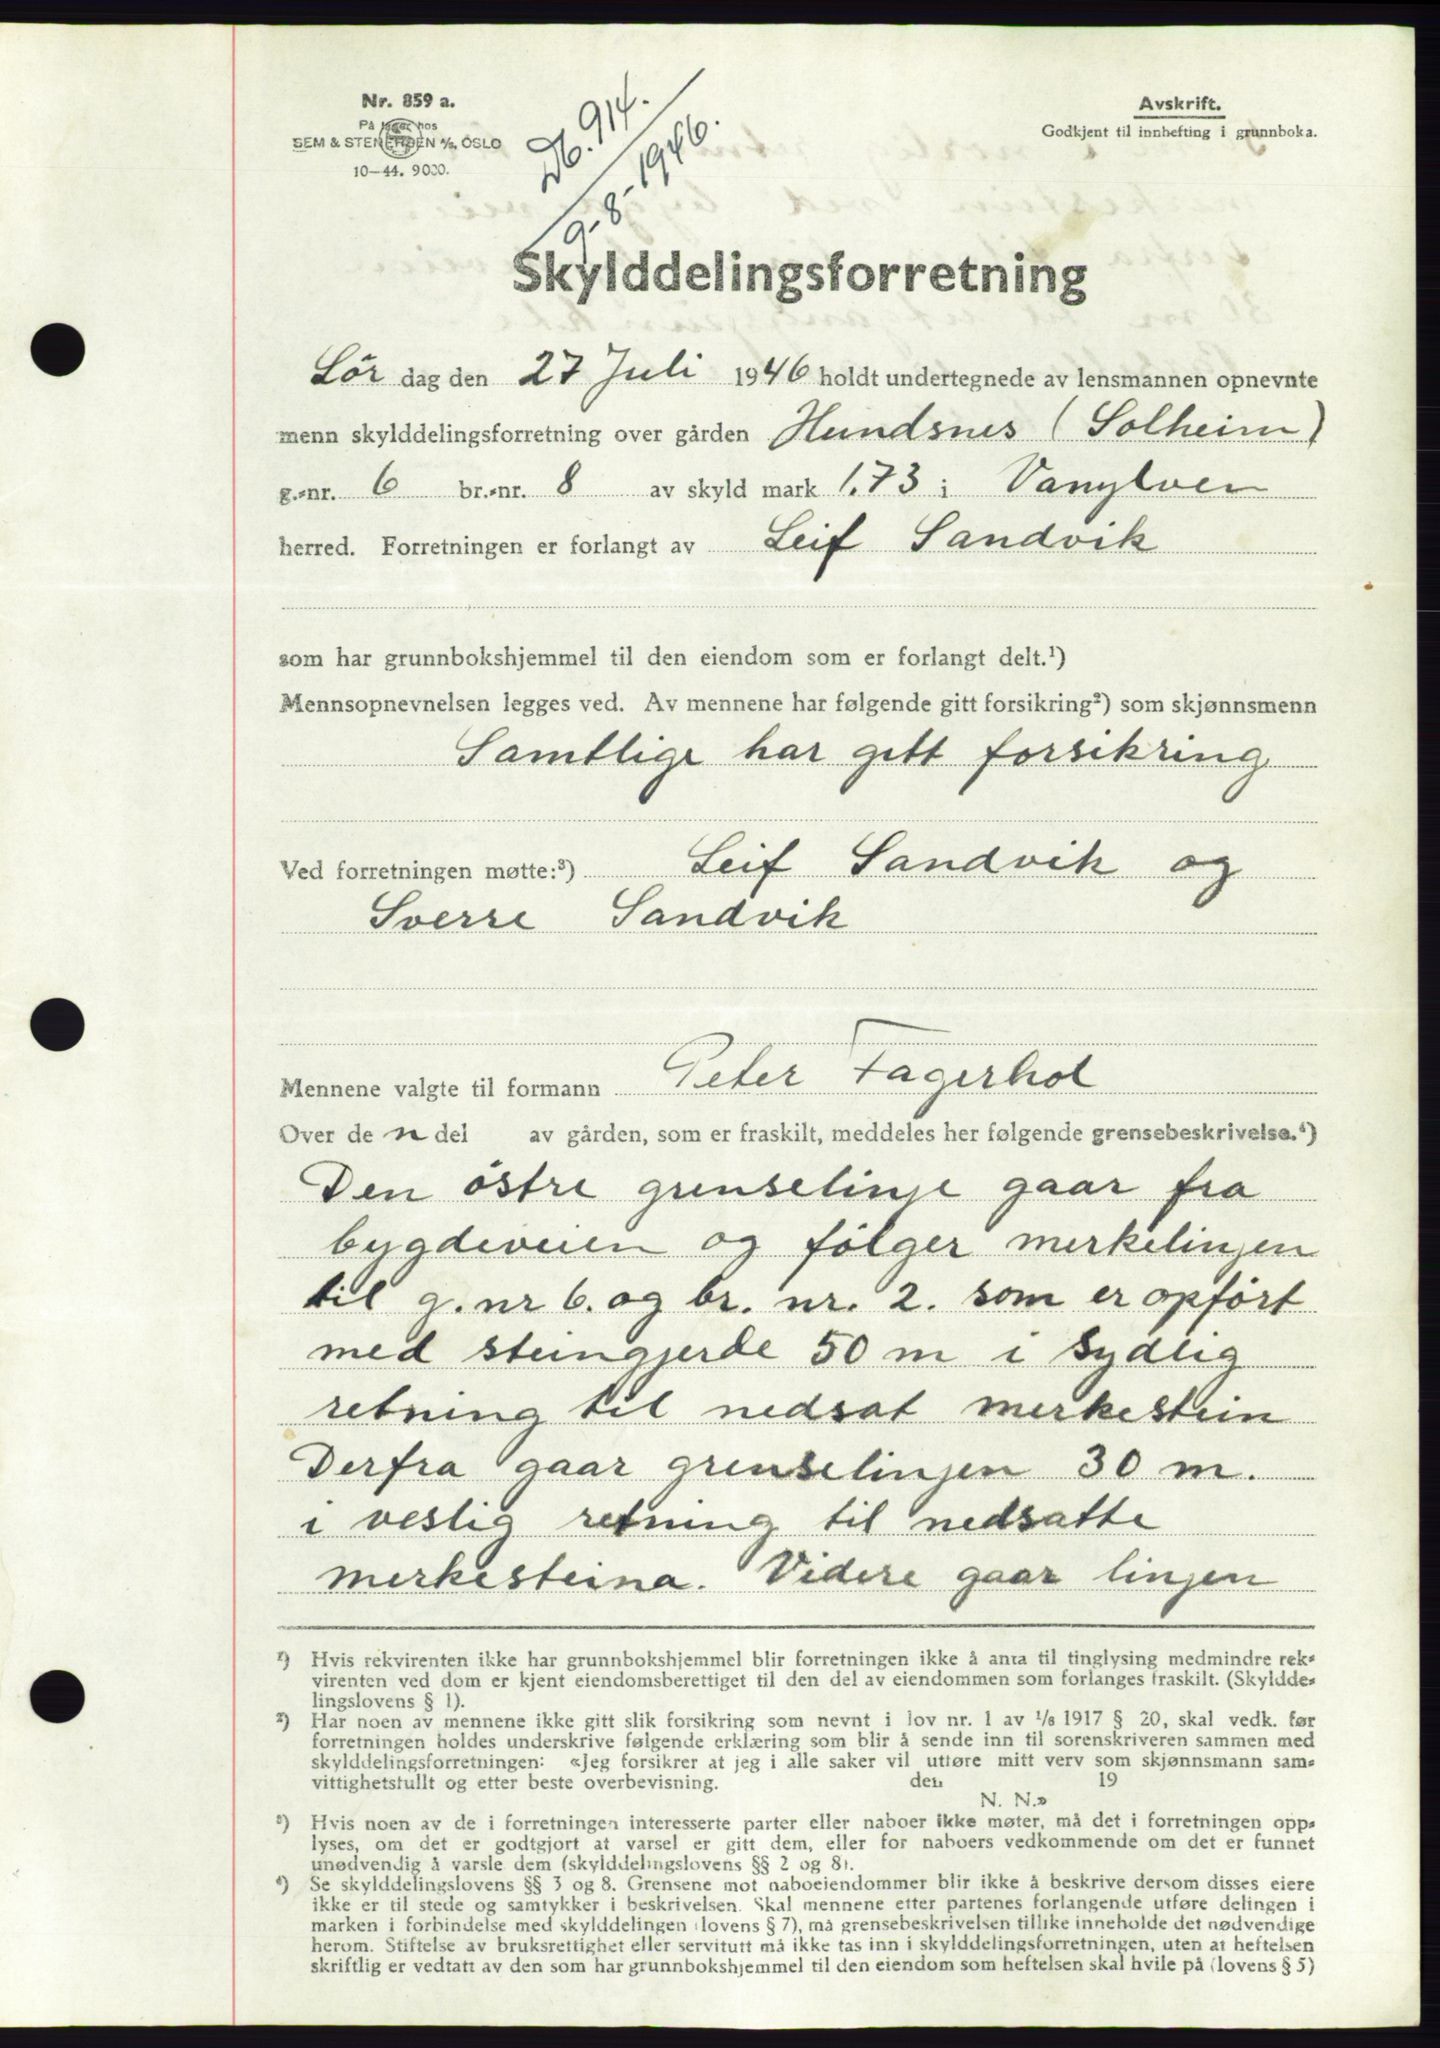 Nr. 859 a.
På lager hos
SEM & STENERSEN A/S, OSLO
10-44. 9000.
Db. 914.
9-8-1946.
Avskrift.
Godkjent til innhefting i grunnboka.
Skylddelingsforretning
Lör dag den 27 Juli 1946 holdt undertegnede av lensmannen opnevnte
menn skylddelingsforretning over gården Hundsnes (Solheim)
g.-nr. 6 br.-nr. 8 av skyld mark 1.73 i Vanylven
herred. Forretningen er forlangt av Leif Sandvik
som har grunnbokshjemmel til den eiendom som er forlangt delt.¹)
Mennsopnevnelsen legges ved. Av mennene har følgende gitt forsikring²) som skjønnsmenn
Samtlige har gitt forsikring
Ved forretningen møtte:³) Leif Sandvik og
Sverre Sandvik
Mennene valgte til formann Peter Fagerhol
Over de n del av gården, som er fraskilt, meddeles her følgende grensebeskrivelse.⁴)
Den östre grenselinje gaar fra
bygdeveien og fölger merkelinjen
til g.nr 6. og br. nr. 2. som er opfört
med steingjerde 50 m i sydlig
retning til nedsat merkestein
Derfra gaar grenselinjen 30 m.
i vestlig retning til nedsatte
merkesteina. Videre gaar linjen
¹) Hvis rekvirenten ikke har grunnbokshjemmel blir forretningen ikke å anta til tinglysing medmindre rek-
virenten ved dom er kjent eiendomsberettiget til den del av eiendommen som forlanges fraskilt. (Skyldde-
lingslovens § 1).
²) Har noen av mennene ikke gitt slik forsikring som nevnt i lov nr. 1 av 1/8 1917 § 20, skal vedk. før
forretningen holdes underskrive følgende erklæring som blir å sende inn til sorenskriveren sammen med
skylddelingsforretningen: «Jeg forsikrer at jeg i alle saker vil utføre mitt verv som skjønnsmann sam-
vittighetsfullt og etter beste overbevisning. den 19
N. N.»
³) Hvis noen av de i forretningen interesserte parter eller naboer ikke møter, må det i forretningen opp-
lyses, om det er godtgjort at varsel er gitt dem, eller for naboers vedkommende om det er funnet
unødvendig å varsle dem (skylddelingslovens §§ 2 og 8).
⁴) Se skylddelingslovens §§ 3 og 8. Grensene mot naboeiendommer blir ikke å beskrive dersom disses eiere
ikke er til stede og samtykker i beskrivelsen. Skal mennene etter partenes forlangende utføre delingen i
marken i forbindelse med skylddelingen (lovens § 7), må grensebeskrivelsen tillike inneholde det nødvendige
herom. Stiftelse av bruksrettighet eller servitutt må ikke tas inn i skylddelingsforretningen, uten at heftelsen
skriftlig er vedtatt av den som har grunnbokshjemmel til den eiendom som heftelsen skal hvile på (lovens § 5)